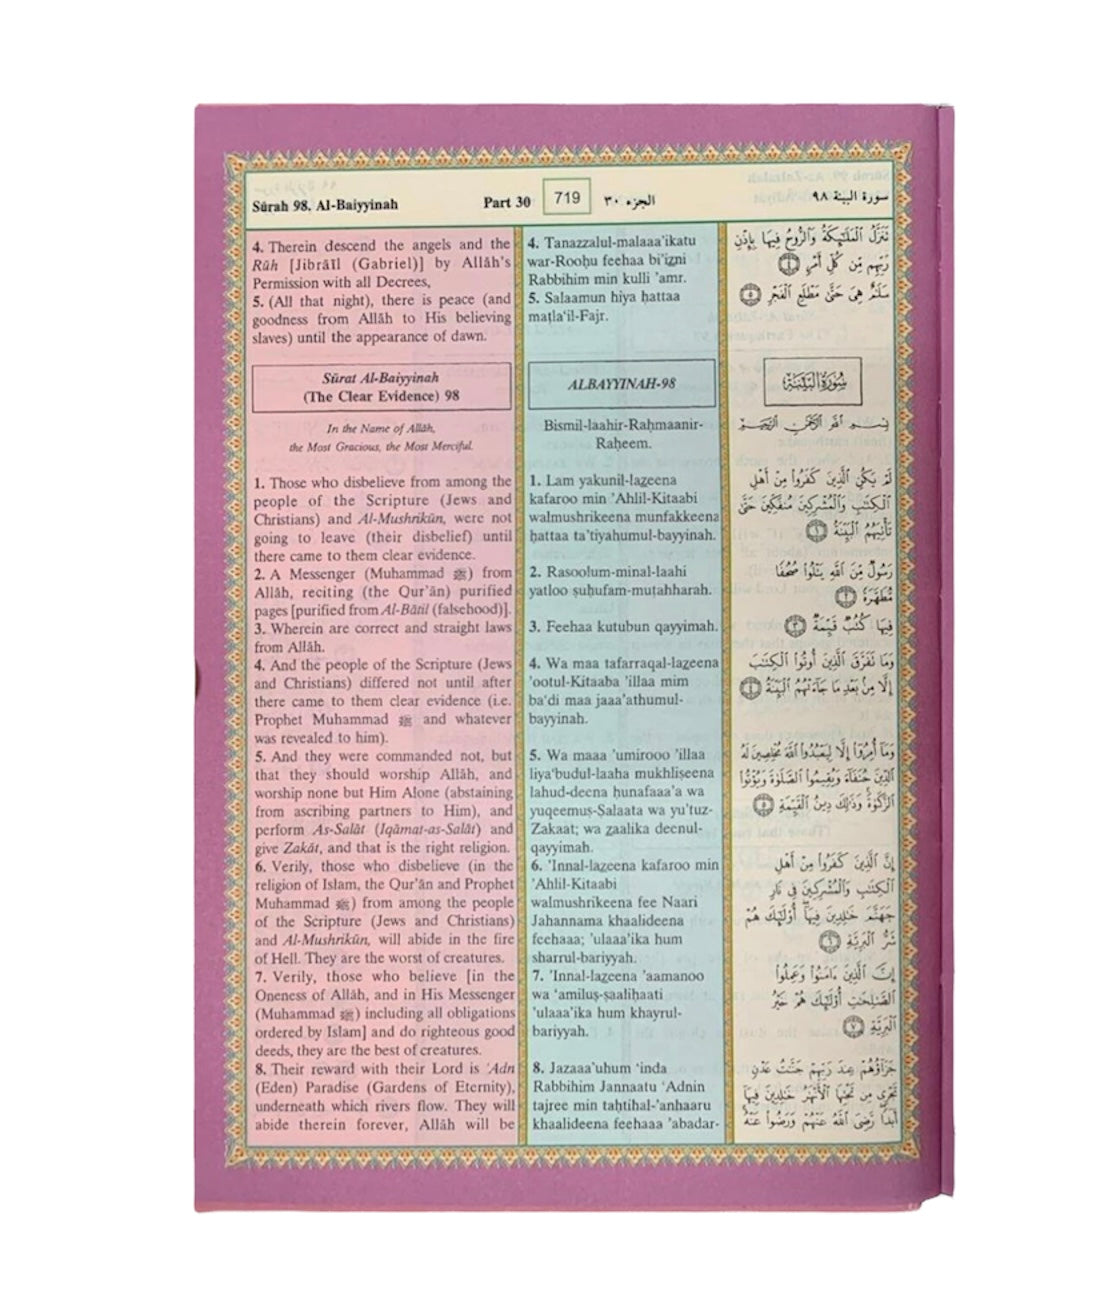 Sûrah 98. Al-Baiyyinah
Part 30
719
الجزء ٣٠
سورة البينة ٩٨
4. Therein descend the angels and the
Rûh [Jibrâîl (Gabriel)] by Allâh's
Permission with all Decrees,
5. (All that night), there is peace (and
goodness from Allâh to His believing
slaves) until the appearance of dawn.
Sûrat Al-Baiyyinah
(The Clear Evidence) 98
In the Name of Allâh,
the Most Gracious, the Most Merciful.
1. Those who disbelieve from among the
people of the Scripture (Jews and
Christians) and Al-Mushrikûn, were not
going to leave (their disbelief) until
there came to them clear evidence.
2. A Messenger (Muhammad ﷺ) from
Allâh, reciting (the Qur'ân) purified
pages [purified from Al-Bâtil (falsehood)].
3. Wherein are correct and straight laws
from Allâh.
4. And the people of the Scripture (Jews
and Christians) differed not until after
there came to them clear evidence (i.e.
Prophet Muhammad ﷺ and whatever
was revealed to him).
5. And they were commanded not, but
that they should worship Allâh, and
worship none but Him Alone (abstaining
from ascribing partners to Him), and
perform As-Salât (Iqâmat-as-Salât) and
give Zakât, and that is the right religion.
6. Verily, those who disbelieve (in the
religion of Islam, the Qur'ân and Prophet
Muhammad ﷺ) from among the people
of the Scripture (Jews and Christians)
and Al-Mushrikûn, will abide in the fire
of Hell. They are the worst of creatures.
7. Verily, those who believe [in the
Oneness of Allâh, and in His Messenger
(Muhammad ﷺ) including all obligations
ordered by Islam] and do righteous good
deeds, they are the best of creatures.
8. Their reward with their Lord is 'Adn
(Eden) Paradise (Gardens of Eternity),
underneath which rivers flow. They will
abide therein forever, Allâh will be
4. Tanazzalul-malaaa'ikatu
war-Rooḥu feehaa bi'iẓni
Rabbihim min kulli 'amr.
5. Salaamun hiya ḥattaa
maṭla'il-Fajr.
ALBAYYINAH-98
Bismil-laahir-Raḥmaanir-
Raḥeem.
1. Lam yakunil-laẓeena
kafaroo min 'Ahlil-Kitaabi
walmushrikeena munfakkeena
ḥattaa ta'tiyahumul-bayyinah.
2. Rasoolum-minal-laahi
yatloo ṣuḥufam-muṭahharah.
3. Feehaa kutubun qayyimah.
4. Wa maa tafarraqal-laẓeena
'ootul-Kitaaba 'illaa mim
ba'di maa jaaa'athumul-
bayyinah.
5. Wa maaa 'umirooo 'illaa
liya'budul-laaha mukhliṣeena
lahud-deena ḥunafaaa'a wa
yuqeemuṣ-Ṣalaata wa yu'tuz-
Zakaat; wa ẓaalika deenul-
qayyimah.
6. 'Innal-laẓeena kafaroo min
'Ahlil-Kitaabi
walmushrikeena fee Naari
Jahannama khaalideena
feehaaa; 'ulaaa'ika hum
sharrul-bariyyah.
7. 'Innal-laẓeena 'aamanoo
wa 'amiluṣ-ṣaaliḥaati
'ulaaa'ika hum khayrul-
bariyyah.
8. Jazaaa'uhum 'inda
Rabbihim Jannaatu 'Adnin
tajree min taḥtihal-'anhaaru
khaalideena feehaaa 'abadar-
تَنَزَّلُ الْمَلَٰٓئِكَةُ وَالرُّوحُ فِيهَا بِإِذْنِ
رَبِّهِم مِّن كُلِّ أَمْرٍ ٤
سَلَٰمٌ هِىَ حَتَّىٰ مَطْلَعِ الْفَجْرِ ٥
سُورَةُ الْبَيِّنَةِ
بِسْمِ اللَّهِ الرَّحْمَٰنِ الرَّحِيمِ
لَمْ يَكُنِ الَّذِينَ كَفَرُوا مِنْ أَهْلِ
الْكِتَٰبِ وَالْمُشْرِكِينَ مُنفَكِّينَ حَتَّىٰ
تَأْتِيَهُمُ الْبَيِّنَةُ ١
رَسُولٌ مِّنَ اللَّهِ يَتْلُوا صُحُفًا
مُّطَهَّرَةً ٢
فِيهَا كُتُبٌ قَيِّمَةٌ ٣
وَمَا تَفَرَّقَ الَّذِينَ أُوتُوا الْكِتَٰبَ
إِلَّا مِنۢ بَعْدِ مَا جَآءَتْهُمُ الْبَيِّنَةُ ٤
وَمَآ أُمِرُوٓا إِلَّا لِيَعْبُدُوا اللَّهَ مُخْلِصِينَ لَهُ
الدِّينَ حُنَفَآءَ وَيُقِيمُوا الصَّلَوٰةَ وَيُؤْتُوا
الزَّكَوٰةَ وَذَٰلِكَ دِينُ الْقَيِّمَةِ ٥
إِنَّ الَّذِينَ كَفَرُوا مِنْ أَهْلِ
الْكِتَٰبِ وَالْمُشْرِكِينَ فِى نَارِ
جَهَنَّمَ خَٰلِدِينَ فِيهَآ أُولَٰٓئِكَ هُمْ
شَرُّ الْبَرِيَّةِ ٦
إِنَّ الَّذِينَ ءَامَنُوا وَعَمِلُوا
الصَّٰلِحَٰتِ أُولَٰٓئِكَ هُمْ خَيْرُ
الْبَرِيَّةِ ٧
جَزَآؤُهُمْ عِندَ رَبِّهِمْ جَنَّٰتُ عَدْنٍ
تَجْرِى مِن تَحْتِهَا الْأَنْهَٰرُ خَٰلِدِينَ فِيهَآ
أَبَدًا رَّضِىَ اللَّهُ عَنْهُمْ وَرَضُوا عَنْهُ